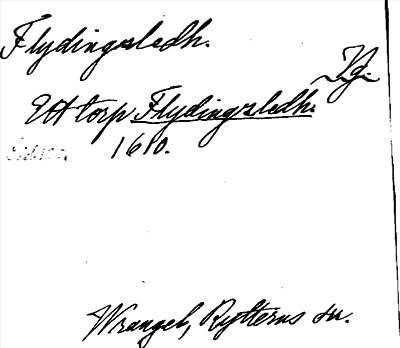 Flydingsledh.
Tg.
Ett torp Flydingsledh.
1610.
Wrangel, Rytterns sn.